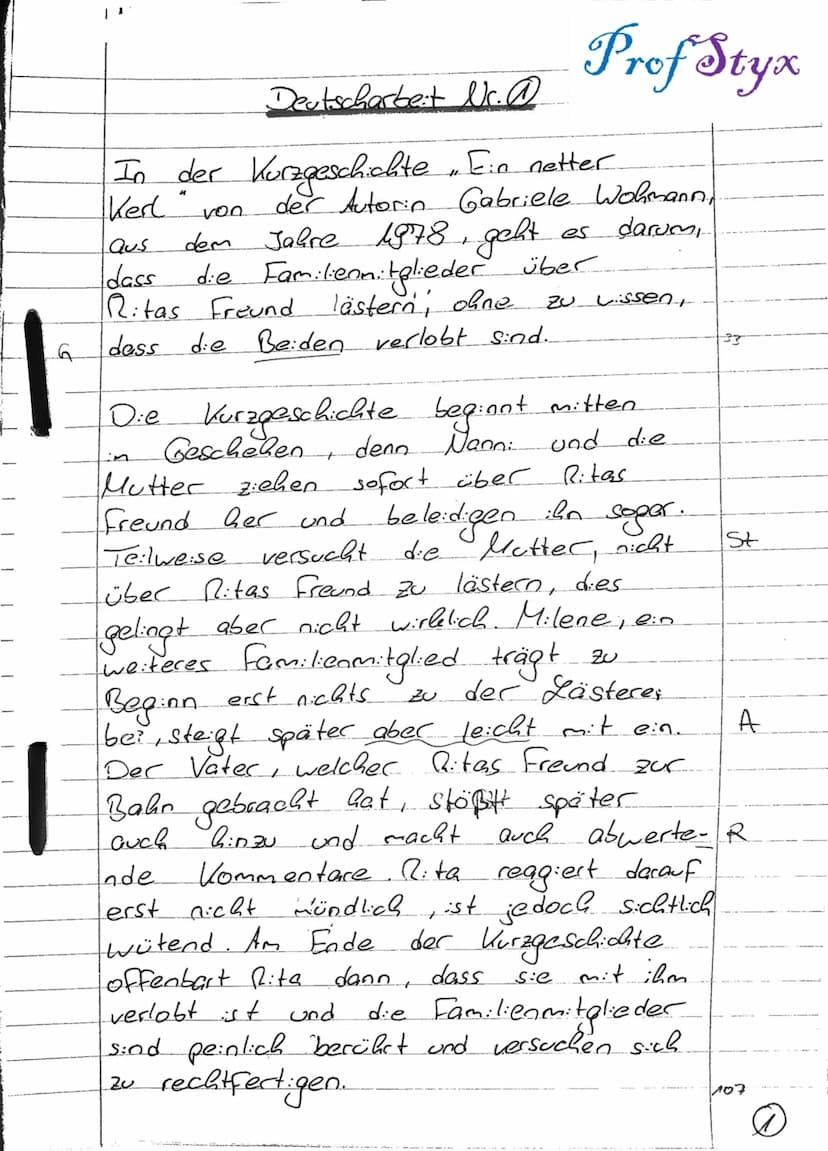 Prof Styx
Deutscharbeit Nr. 1
In der Kurzgeschichte „Ein netter
Kerl" von der Autorin Gabriele Wohmann,
aus dem Jahre 1978, geht es darum,
dass die Familienmitglieder über
Ritas Freund lästern, ohne zu wissen,
G dass die Beiden verlobt sind. 33
Die Kurzgeschichte beginnt mitten
in Geschehen, denn Nanni und die
Mutter ziehen sofort über Ritas
Freund her und beleidigen ihn sogar.
Teilweise versucht die Mutter, nicht St
über Ritas Freund zu lästern, dies
gelingt aber nicht wirklich. Milene, ein
weiteres Familienmitglied trägt zu
Beginn erst nichts zu der Lästerei
bei, steigt später aber leicht mit ein. A
Der Vater, welcher Ritas Freund zur
Bahn gebracht hat, stößt später
auch hinzu und macht auch abwerte- R
nde Kommentare. Rita reagiert darauf
erst nicht mündlich, ist jedoch sichtlich
wütend. Am Ende der Kurzgeschichte
offenbart Rita dann, dass sie mit ihm
verlobt ist und die Familienmitglieder
sind peinlich berührt und versuchen sich
zu rechtfertigen. 107
1